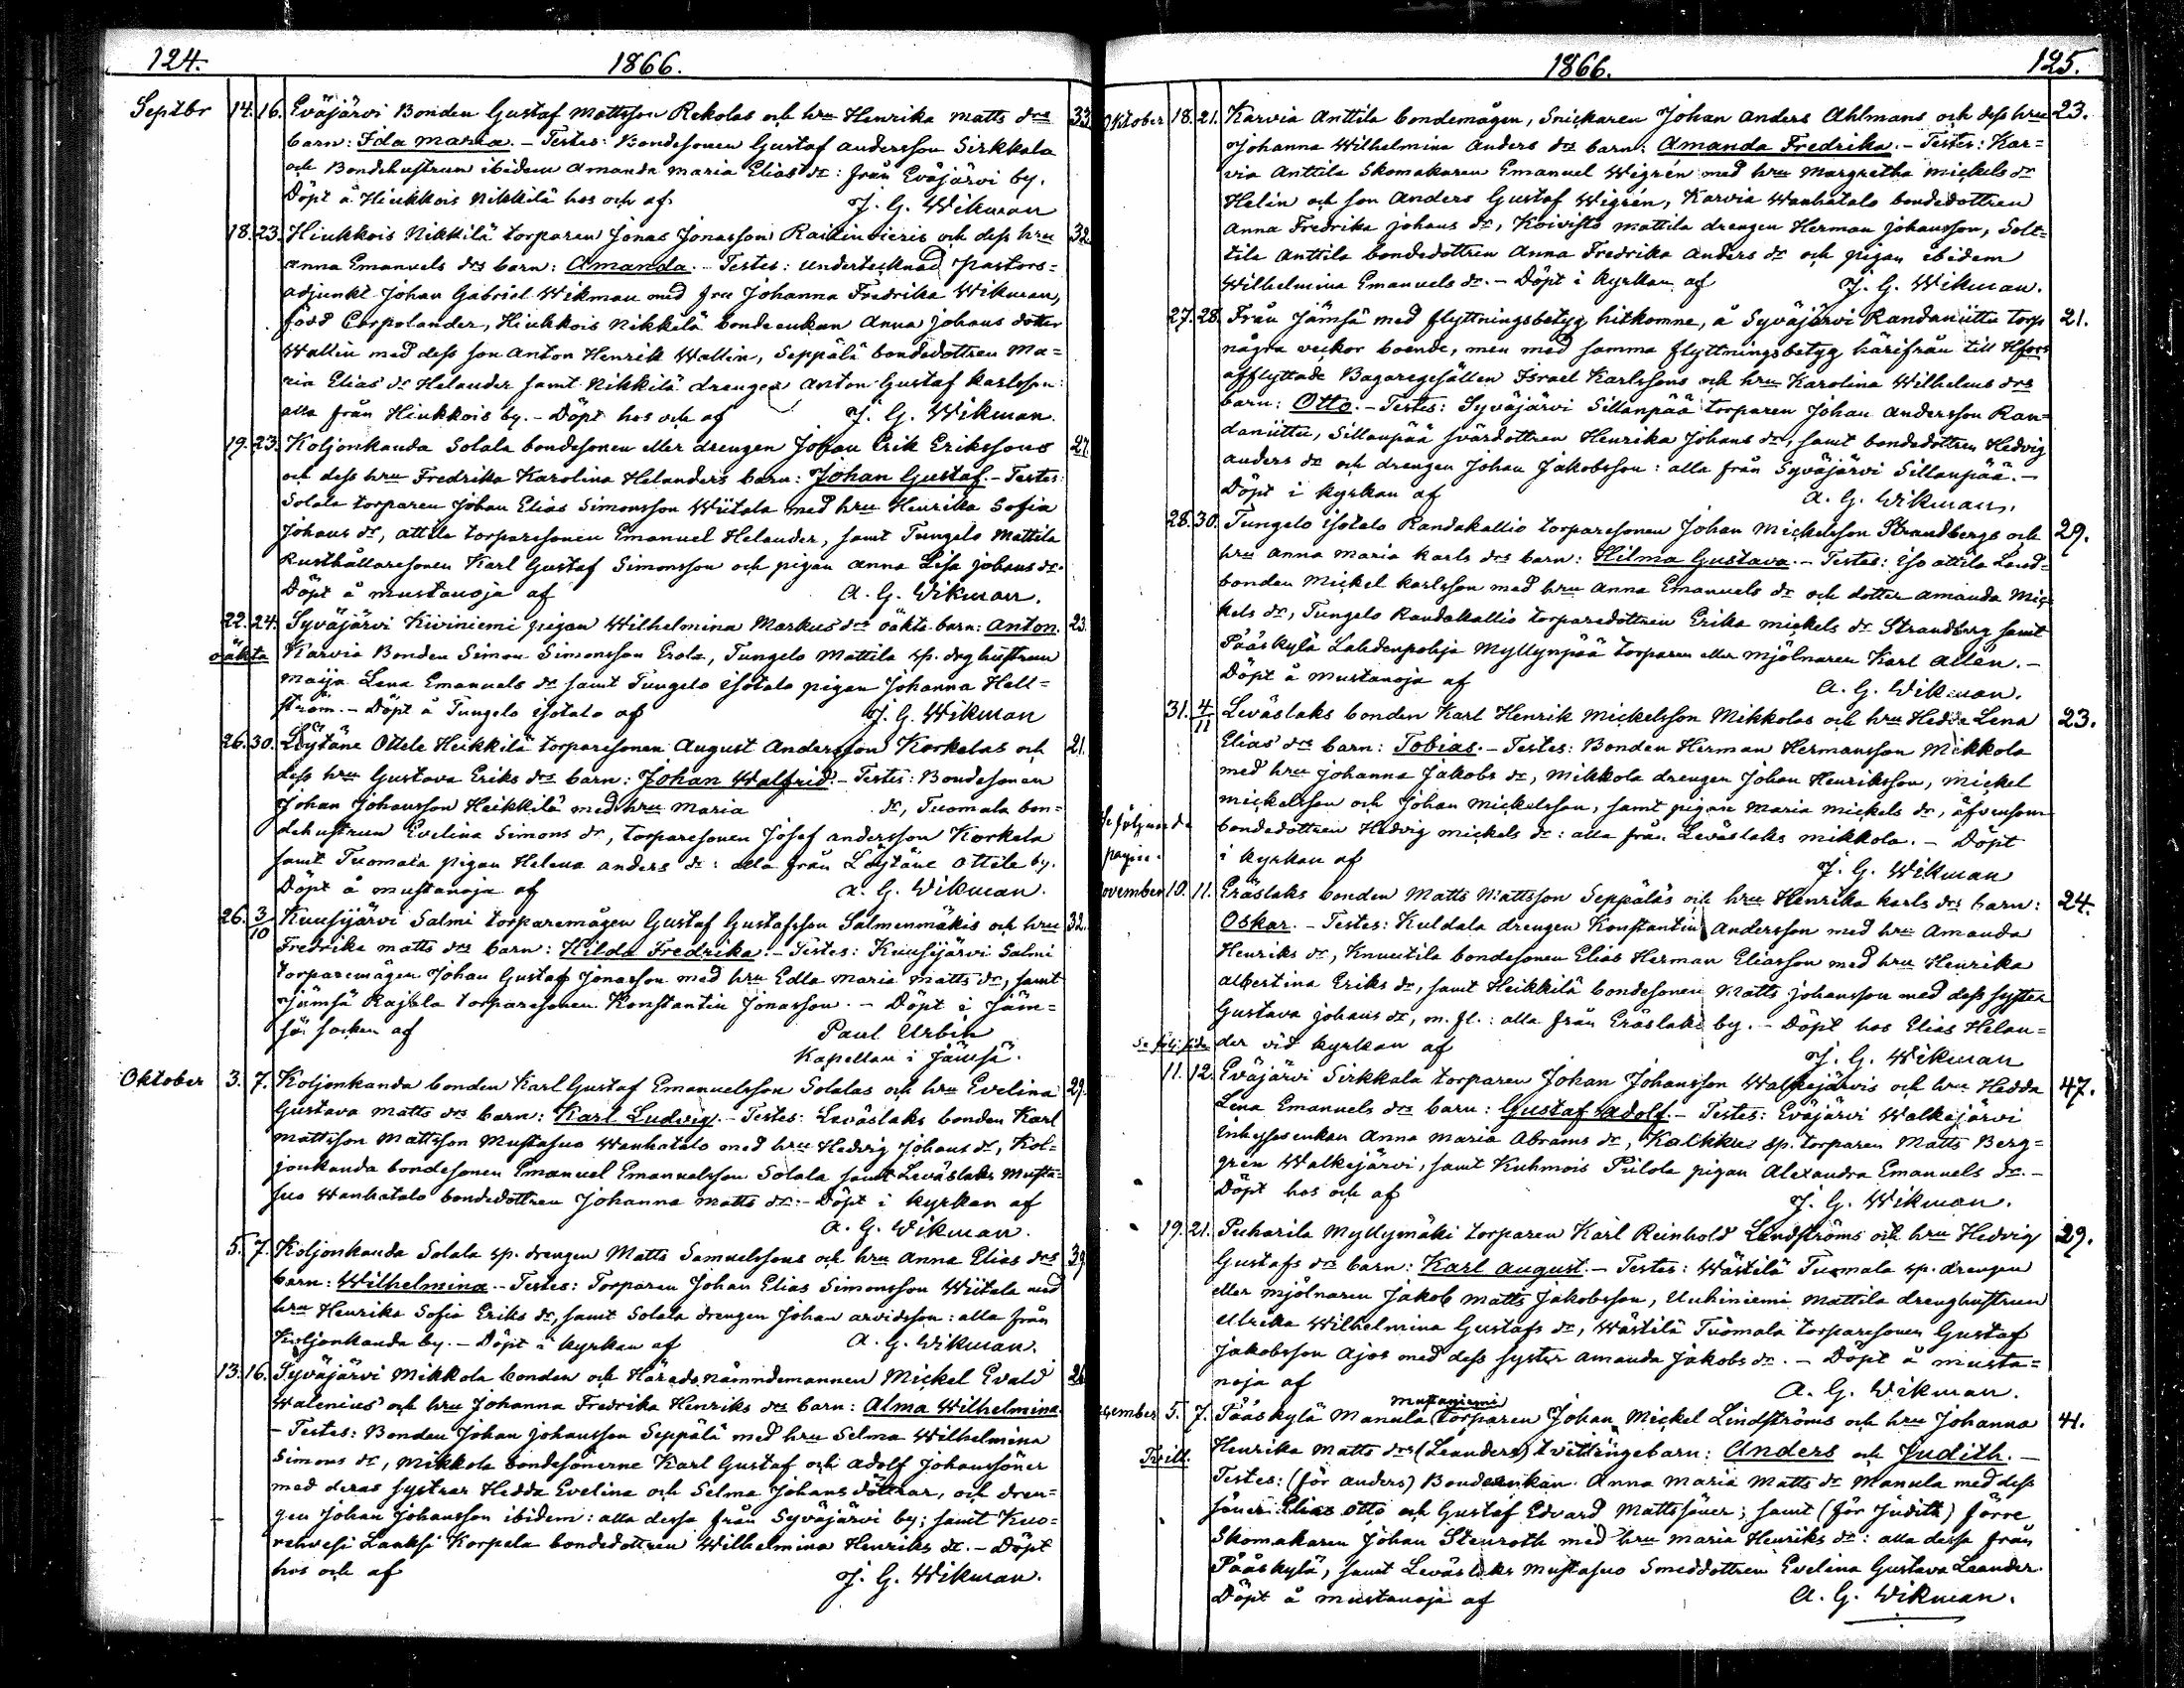 124. 1866.
Septbr 14. 16. Eväjärvi Bonden Gustaf Mattsson Rekolas och hru Henrika Matts drs 33.
barn: Ida Maria. – Testes: Bondesonen Gustaf Andersson Sirkkala
och Bondehustrun ibidem Amanda Maria Elias dr: från Eväjärvi by.
Döpt å Hiukkois Nikkilä hos och af J. G. Wikman
18. 23. Hiukkois Nikkilä torparen Jonas Jonasson och dess hru 32.
Anna Emanuels drs barn: Amanda. – Testes: undertecknad Pastors=
adjunkt Johan Gabriel Wikman med fru Johanna Fredrika Wikman,
född Corpolander, Hiukkois Nikkilä bondeenkan Anna Johans dotter
Wallin med dess son Anton Henrik Wallin, Seppälä bondedottren Ma=
ria Elias dr Helander samt Nikkilä drengen Anton Gustaf Karlsson:
alla från Hiukkois by. – Döpt hos och af J. G. Wikman.
19. 23. Koljonkanda Solala bondesonen eller drengen Johan Erik Erikssons 27.
och dess hru Fredrika Karolina Helanders barn: Johan Gustaf. – Testes:
Solala torparen Johan Elias Simonsson Wiitala med hru Henrika Sofia
Johans dr, Attila torparesonen Emanuel Helander, samt Tungelo Mattila
Rusthållaresonen Karl Gustaf Simonsson och pigan Anna Lisa Johans dr.
Döpt å Mustanoja af A. G. Wikman.
22. 24. Syväjärvi Kiviniemi pigan Wilhelmina Markus drs oäkta barn: Anton. 23.
oäkta Karvia Bonden Simon Simonsson Erola, Tungelo Mattila sp. drg hustrun
Maija Lena Emanuels dr samt Tungelo Isotalo pigan Johanna Hell=
ström. – Döpt å Tungelo Isotalo af J. G. Wikman
26. 30. Löytäne Ottele Heikkilä torparesonen August Andersson Korkelas och 21.
dess hru Gustava Eriks drs barn: Johan Walfrid. – Testes: Bondesonen
Johan Johansson Heikkilä med hru Maria dr, Tuomala bon=
dehustrun Evelina Simons dr, torparesonen Josef Andersson Korkela
samt Tuomala pigan Helena Anders dr: alla från Löytäne Ottile by.
Döpt å Mustanoja af A. G. Wikman.
26. 3/10 Kuusijärvi Salmi torparemågen Gustaf Gustafsson Salmenmäkis och hru 32.
Fredrika Matts drs barn: Hilda Fredrika. – Testes: Kuusijärvi Salmi
torparemågen Johan Gustaf Jonasson med hru Edla Maria Matts dr, samt
Jämsä Rajala torparesonen Konstantin Jonasson. – Döpt i Jäm=
sä socken af Paul Urbin
Kapellan i Jämsä.
Oktober 3. 7. Koljonkanda bonden Karl Gustaf Emanuelsson Solalas och hru Evelina 29.
Gustava Matts drs barn: Karl Ludvig. – Testes: Leväslaks bonden Karl
Mattsson Mattsson Mustasuo Wanhatalo med hru Hedvig Johans dr, Kol=
jonkanda bondesonen Emanuel Emanuelsson Solala samt Leväslaks Musta=
suo Wanhatalo bondedottren Johanna Matts dr. – Döpt i kyrkan af
A. G. Wikman.
5. 7. Koljonkanda Solala sp. drengen Matts Samuelssons och hru Anna Elias drs 39
barn: Wilhelmina. – Testes: Torparen Johan Elias Simonsson Wiitala med
hru Henrika Sofia Eriks dr, samt Solala drengen Johan Arvidsson: alla från
Koljonkanda by. – Döpt i kyrkan af A. G. Wikman.
13. 16. Syväjärvi Mikkola bonden och Härads nämndemannen Mickel Evald 26
Walenius och hru Johanna Fredrika Henriks drs barn: Alma Wilhelmina.
– Testes: Bonden Johan Johansson Seppälä med hru Selma Wilhelmina
Simons dr, Mikkola bondesönerne Karl Gustaf och Adolf Johanssöner
med deras systrar Hedda Evelina och Selma Johans döttrar, och dren=
gen Johan Johansson ibidem: alla dessa från Syväjärvi by; samt Kuo=
rehvesi Lanksi Korpela bondedottren Wilhelmina Henriks dr. – Döpt
hos och af J. G. Wikman.
1866. 125.
Oktober 18. 21. Karvia Anttila bondemågen, Snickaren Johan Anders Ahlmans och dess hru 23.
Johanna Wilhelmina Anders drs barn: Amanda Fredrika. – Testes: Kar=
via Anttila Skomakaren Emanuel Wigrén med hru Margretha Mickels dr
Helin och son Anders Gustaf Wigrén, Karvia Wanhatalo bondedottren
Anna Fredrika Johans dr, Koivisto Mattila drengen Herman Johansson, Solt=
tila Anttila bondedottren Anna Fredrika Anders dr och pigan ibidem
Wilhelmina Emanuels dr. – Döpt i kyrkan af J. G. Wikman.
27. 28. Från Jämsä med flyttningsbetyg hitkomne, å Syväjärvi Randaniittu torp 21.
några veckor boende, men med samma flyttningsbetyg härifrån till Hfors
afflyttade Bagaregesällen Israel Karlssons och hru Karolina Wilhelms drs
barn: Otto. – Testes: Syväjärvi Sillanpää torparen Johan Andersson Ran=
daniittu, Sillanpää svärdottren Henrika Johans dr, samt bondedottren Hedvig
Anders dr och drengen Johan Jakobsson: alla från Syväjärvi Sillanpää. –
Döpt i kyrkan af A. G. Wikman.
28. 30. Tungelo Isotalo Randakallio torparesonen Johan Mickelsson Strandbergs och 29.
hru Anna Maria Karls drs barn: Hilma Gustava. – Testes: Iso Attila Land=
bonden Mickel Karlsson med hru Anna Emanuels dr och dotter Amanda Mic=
kels dr, Tungelo Randakallio torparedottren Erika Mickels dr Strandberg samt
Pääskylä Lahdenpohja Myllynpää torparen eller mjölnaren Karl Allén. –
Döpt å Mustanoja af A. G. Wikman.
31. 4/11 Leväslaks bonden Karl Henrik Mickelsson Mikkolas och hru Hedda Lena 23.
Elias drs barn: Tobias. – Testes: Bonden Herman Hermansson Mikkola
med hru Johanna Jakobs dr, Mikkola drengen Johan Henriksson, Mickel
Mickelsson och Johan Mickelsson, samt pigan Maria Mickels dr, äfvensom
Se följande bondedottren Hedvig Mickels dr: alla från Leväslaks Mikkola. – Döpt
pagina. i kyrkan af J. G. Wikman
November 10. 11. Eräslaks bonden Matts Mattsson Seppäläs och hru Henrika Karls drs barn: 24.
Oskar. – Testes: Kuldala drengen Konstantin Andersson med hru Amanda
Henriks dr, Knuutila bondesonen Elias Herman Eliasson med hru Henrika
Albertina Eriks dr, samt Heikkilä bondesonen Matts Johansson med dess syster
Gustava Johans dr, m. fl.: alla från Eräslaks by. – Döpt hos Elias Helan=
Se följ. sida der vid kyrkan af J. G. Wikman
11. 12. Eväjärvi Sirkkala torparen Johan Johansson Walkejärvis och hru Hedda 47.
Lena Emanuels drs barn: Gustaf Adolf. – Testes: Eväjärvi Walkejärvi
Inhysesenkan Anna Maria Abrams dr, Kalkku sp. torparen Matts Berg=
grén Walkejärvi, samt Kuhmois Piilola pigan Alexandra Emanuels dr. –
Döpt hos och af J. G. Wikman.
19. 21. Puharila Myllymäki torparen Karl Reinhold Lindströms och hru Hedvig 29.
Gustafs drs barn: Karl August. – Testes: Wästilä Tuomala sp. drengen
eller mjölnaren Jakob Matts Jakobsson, Uuhiniemi Mattila drenghustrun
Ulrika Wilhelmina Gustafs dr, Wästilä Tuomala torparesonen Gustaf
Jakobsson Ajos med dess syster Amanda Jakobs dr. – Döpt å Musta=
noja af A. G. Wikman.
Mustaniemi
December 5. 7. Pääskylä Manula torparen Johan Mickel Lindströms och hru Johanna 41.
Tvill. Henrika Matts drs (Leanders) tvillingebarn: Anders och Judith. –
Testes: (för Anders) Bondeenkan Anna Maria Matts dr Manula med dess
söner Elias Otto och Gustaf Edvard Mattssöner; samt (för Judith) förre
Skomakaren Johan Stenroth med hru Maria Henriks dr: alla dessa från
Pääskylä, samt Leväslaks Mustasuo Smeddottren Evelina Gustava Leander.
Döpt å Mustanoja af A. G. Wikman.